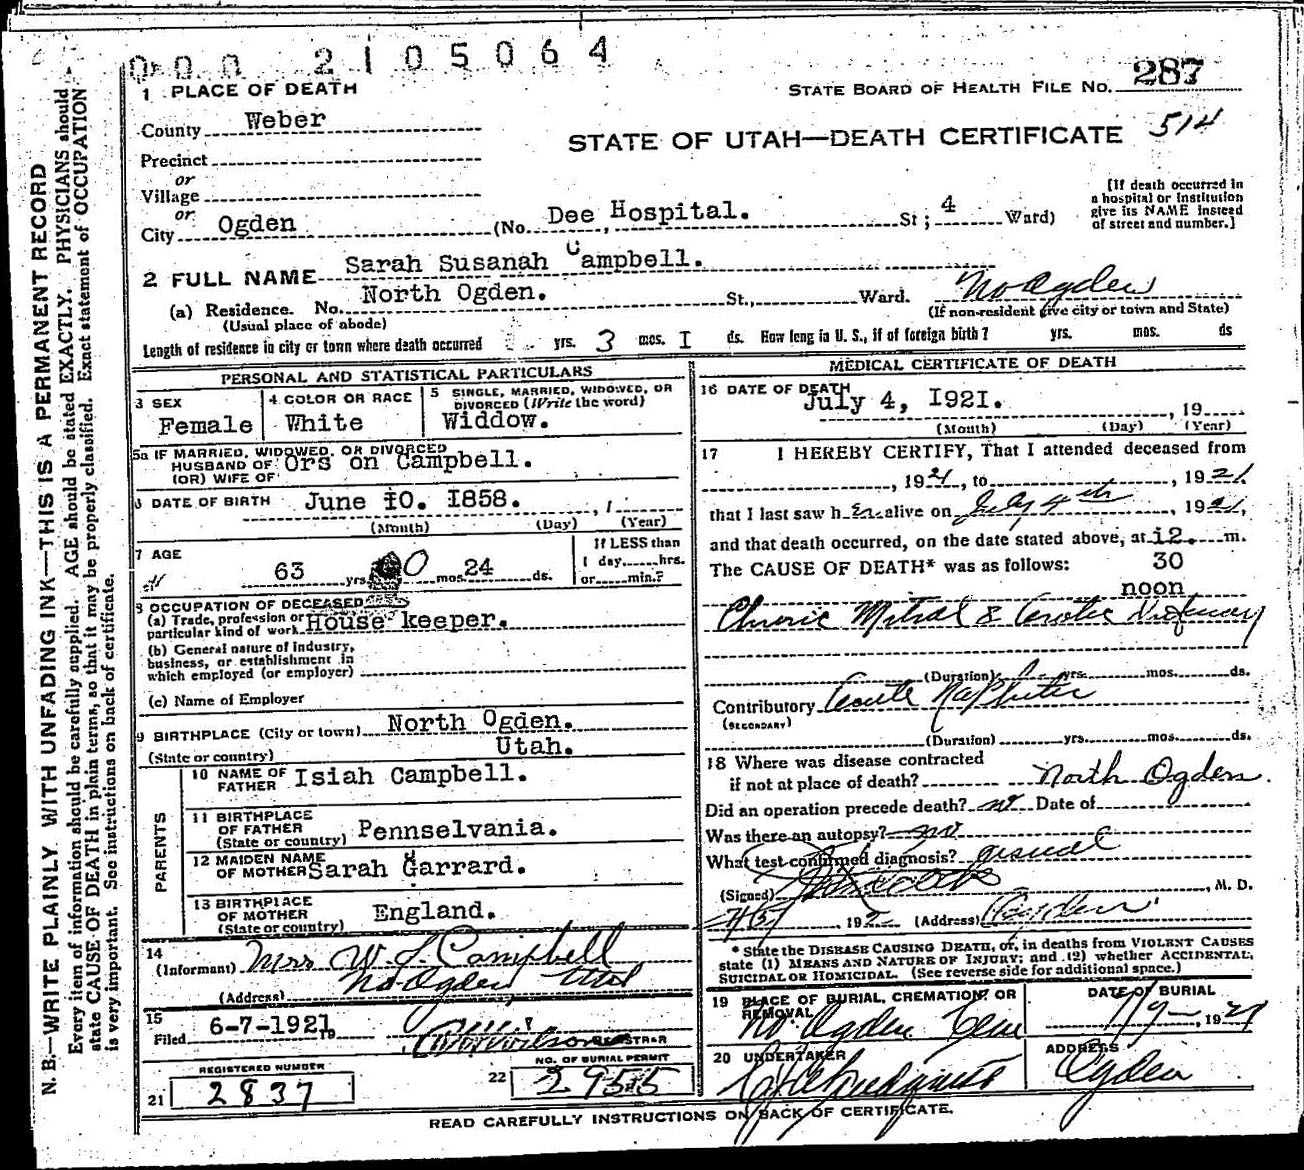 000 2105064
1 PLACE OF DEATH
STATE BOARD OF HEALTH FILE NO. 287
County Weber
STATE OF UTAH—DEATH CERTIFICATE 514
Precinct
or
Village
or
City Ogden (No. Dee Hospital. St; 4 Ward)
[If death occurred in a hospital or institution give its NAME instead of street and number.]
2 FULL NAME Sarah Susanah Campbell.
(a) Residence. No. North Ogden. St., Ward. No Ogden
(Usual place of abode) (If non-resident give city or town and State)
Length of residence in city or town where death occurred yrs. 3 mos. I ds. How long in U. S., if of foreign birth? yrs. mos. ds
PERSONAL AND STATISTICAL PARTICULARS
3 SEX
Female
4 COLOR OR RACE
White
5 SINGLE, MARRIED, WIDOWED, OR DIVORCED (Write the word)
Widdow.
5a IF MARRIED, WIDOWED, OR DIVORCED
HUSBAND OF
(OR) WIFE OF
Ors on Campbell.
6 DATE OF BIRTH June 10. I858. , 1
(Month) (Day) (Year)
7 AGE
63 yrs. 0 mos. 24 ds.
If LESS than
1 day, hrs.
or min.?
8 OCCUPATION OF DECEASED
(a) Trade, profession or
particular kind of work House keeper.
(b) General nature of industry,
business, or establishment in
which employed (or employer)
(c) Name of Employer
9 BIRTHPLACE (City or town) North Ogden.
(State or country) Utah.
PARENTS
10 NAME OF FATHER Isiah Campbell.
11 BIRTHPLACE OF FATHER
(State or country) Pennselvania.
12 MAIDEN NAME OF MOTHER Sarah Garrard.
13 BIRTHPLACE OF MOTHER
(State or country) England.
14
(Informant) Mrs W. J. Campbell
(Address) No Ogden Utah
15
Filed 6-7-1921 19
REGISTRAR
REGISTERED NUMBER
21 2837
NO. OF BURIAL PERMIT
22 2955
MEDICAL CERTIFICATE OF DEATH
16 DATE OF DEATH
July 4, I92I. , 19
(Month) (Day) (Year)
17 I HEREBY CERTIFY, That I attended deceased from
, 1921, to , 1921
that I last saw h er alive on July 4th , 1921,
and that death occurred, on the date stated above, at 12. m.
The CAUSE OF DEATH* was as follows: 30
noon
Chronic Mitral &
(Duration) yrs. mos. ds.
Contributory Acute
(SECONDARY)
(Duration) yrs. mos. ds.
18 Where was disease contracted
if not at place of death? North Ogden.
Did an operation precede death? no Date of
Was there an autopsy? no
What test confirmed diagnosis? visual
(Signed) , M. D.
192 (Address) Ogden
* State the DISEASE CAUSING DEATH, or, in deaths from VIOLENT CAUSES
state (1) MEANS AND NATURE OF INJURY; and (2) whether ACCIDENTAL,
SUICIDAL OR HOMICIDAL. (See reverse side for additional space.)
19 PLACE OF BURIAL, CREMATION, OR REMOVAL
No. Ogden Cem
DATE OF BURIAL
7/9 1921
20 UNDERTAKER
ADDRESS
Ogden
READ CAREFULLY INSTRUCTIONS ON BACK OF CERTIFICATE.
N. B.—WRITE PLAINLY, WITH UNFADING INK—THIS IS A PERMANENT RECORD
Every item of information should be carefully supplied. AGE should be stated EXACTLY. PHYSICIANS should
state CAUSE OF DEATH in plain terms, so that it may be properly classified. Exact statement of OCCUPATION
is very important. See instructions on back of certificate.